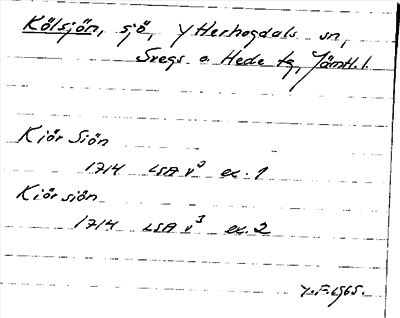 Kölsjön, sjö, Ytterhogdals sn,
Svegs o. Hede tg, Jämtl. l.
Kiör Siön
1714 LSA v³ ex. 1
Kiör siön
1714 LSA v³ ex. 2
1965.